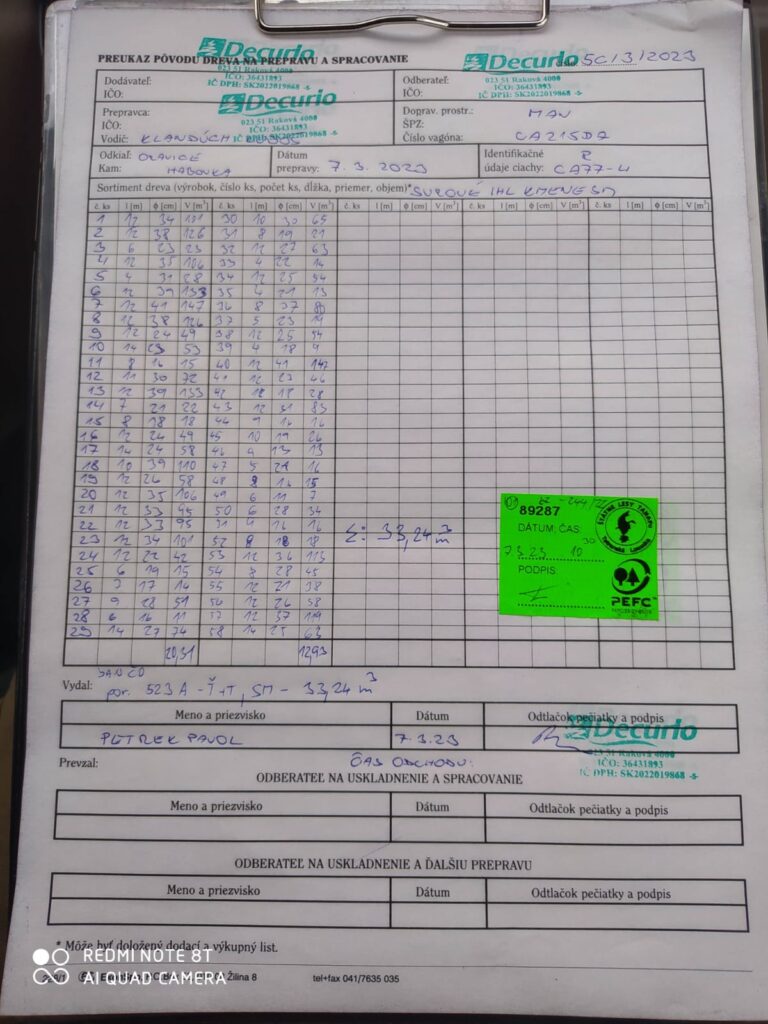 PREUKAZ PÔVODU DREVA NA PREPRAVU A SPRACOVANIE
Decurio
023 51 Raková 4000
IČO: 36431893
IČ DPH: SK2022019868 -5-
Decurio
023 51 Raková 4000
IČO: 36431893
IČ DPH: SK2022019868 -5-
50/3/2023
Dodávateľ:
IČO:
Decurio
023 51 Raková 4000
IČO: 36431893
IČ DPH: SK2022019868 -5-
Odberateľ:
IČO:
Prepravca:
IČO:
Vodič:
Doprav. prostr.: MAN
ŠPZ:
Číslo vagóna: CA215DA
Odkiaľ: ORAVICE
Kam: HABOVKA
Dátum
prepravy: 7. 3. 2023
Identifikačné R
údaje ciachy: CA77-4
Sortiment dreva (výrobok, číslo ks, počet ks, dĺžka, priemer, objem)* SUROVÉ IHL KMENE SM
č. ks l [m] ϕ [cm] V [m³] č. ks l [m] ϕ [cm] V [m³] č. ks l [m] ϕ [cm] V [m³] č. ks l [m] ϕ [cm] V [m³]
1 12 34 101 30 10 30 65
2 12 38 126 31 8 19 21
3 6 23 23 32 12 27 63
4 12 35 106 33 4 22 14
5 4 31 28 34 12 25 54
6 12 39 133 35 4 21 13
7 12 41 147 36 8 37 80
8 12 38 126 37 5 23 19
9 12 24 49 38 12 25 54
10 14 23 53 39 4 18 9
11 8 16 15 40 12 41 147
12 11 30 72 41 12 23 46
13 12 39 133 42 12 18 28
14 7 21 22 43 12 31 83
15 8 18 18 44 9 16 16
16 12 24 49 45 10 19 26
17 14 24 58 46 9 13 13
18 10 39 110 47 5 21 16
19 12 26 58 48 9 16 15
20 12 35 106 49 6 11 7
21 12 33 95 50 6 28 34
22 12 33 95 51 9 16 16
23 12 34 101 52 8 18 18
24 12 22 42 53 12 36 113
25 6 19 15 54 8 28 45
26 3 17 14 55 12 21 38
27 9 28 51 56 12 26 58
28 6 16 11 57 12 37 119
29 14 27 74 58 14 25 63
20,31 12,93
Σ: 33,24 m³
89287
DÁTUM, ČAS
7.3.23 10 30
PODPIS
ŠTÁTNE LESY TANAPU
Tatranská Lomnica
PEFC
Vydal: JANČO
por. 523 A - Ť+T, SM - 33,24 m³
Meno a priezvisko Dátum Odtlačok pečiatky a podpis
PETREK PAVOL 7.3.23
Decurio
023 51 Raková 4000
IČO: 36431893
IČ DPH: SK2022019868 -5-
Prevzal: ČAS ODCHODU:
ODBERATEĽ NA USKLADNENIE A SPRACOVANIE
Meno a priezvisko Dátum Odtlačok pečiatky a podpis
ODBERATEĽ NA USKLADNENIE A ĎALŠIU PREPRAVU
Meno a priezvisko Dátum Odtlačok pečiatky a podpis
* Môže byť doložený dodací a výkupný list.
Žilina 8 tel+fax 041/7635 035
REDMI NOTE 8T
AI QUAD CAMERA